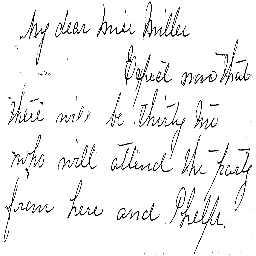 My dear Miss Miller
Expect now that
there will be thirty two
who will attend the party
from here and Shelby.